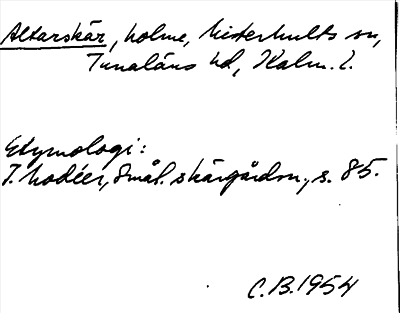 Altarskär, holme, Misterhults sn,
Tunaläns hd, Kalm. l.
Etymologi:
T. Modéer, Smål. skärgårdsn., s. 85.
C.B. 1954